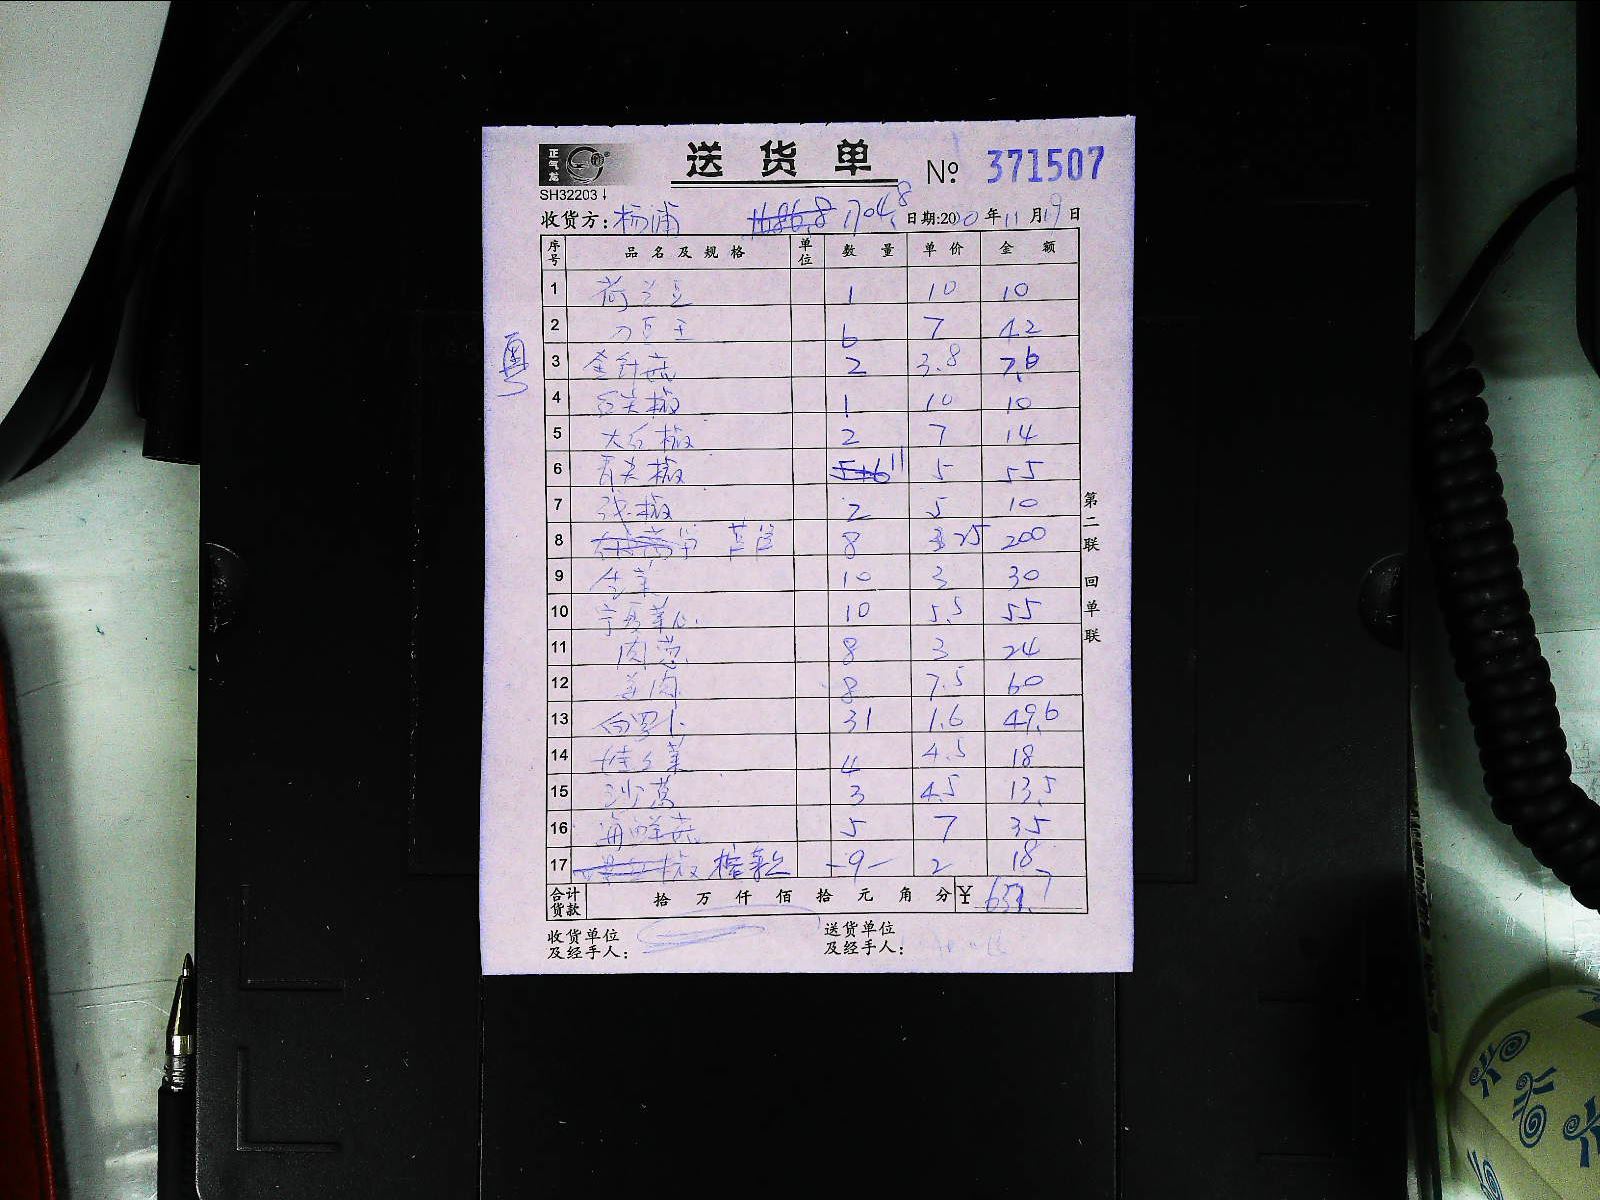 正气龙
送货单 № 371507
SH32203↓
收货方: 杨浦 1686.8 1704.8 日期:2020年11月19日
序号 品名及规格 单位 数量 单价 金额
1 荷兰豆 1 10 10
2 刀豆王 6 7 42
3 金针菇 2 3.8 7.6
4 红尖椒 1 10 10
5 大红椒 2 7 14
6 青尖椒 5+6 11 5 55
7 线椒 2 5 10
8 8 25 200
9 生菜 10 3 30
10 宁夏菜心 10 5.5 55
11 肉葱 8 3 24
12 8 7.5 60
13 白萝卜 31 1.6 49.6
14 娃娃菜 4 4.5 18
15 沙葛 3 4.5 13.5
16 海鲜菇 5 7 35
17 榨菜 9 2 18
合计货款 拾 万 仟 佰 拾 元 角 分 ¥ 651.7
收货单位及经手人:
送货单位及经手人:
第二联 回单联